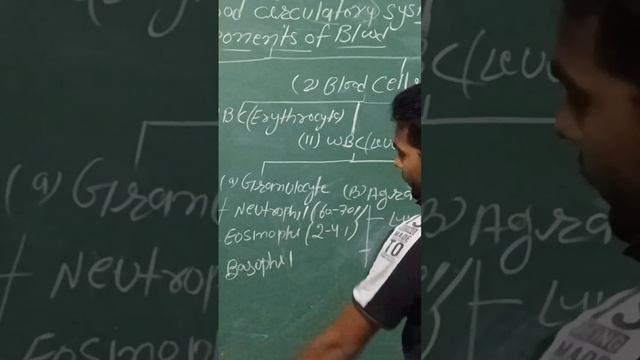 od circulatory sys
onents of Blood
(2) Blood Cell
BC (Erythrocyte)
(II) WBC (Leu
(a) Granulocyte (B) Agra
Neutrophil (60-70%)
Eosinophil (2-4%)
Basophil